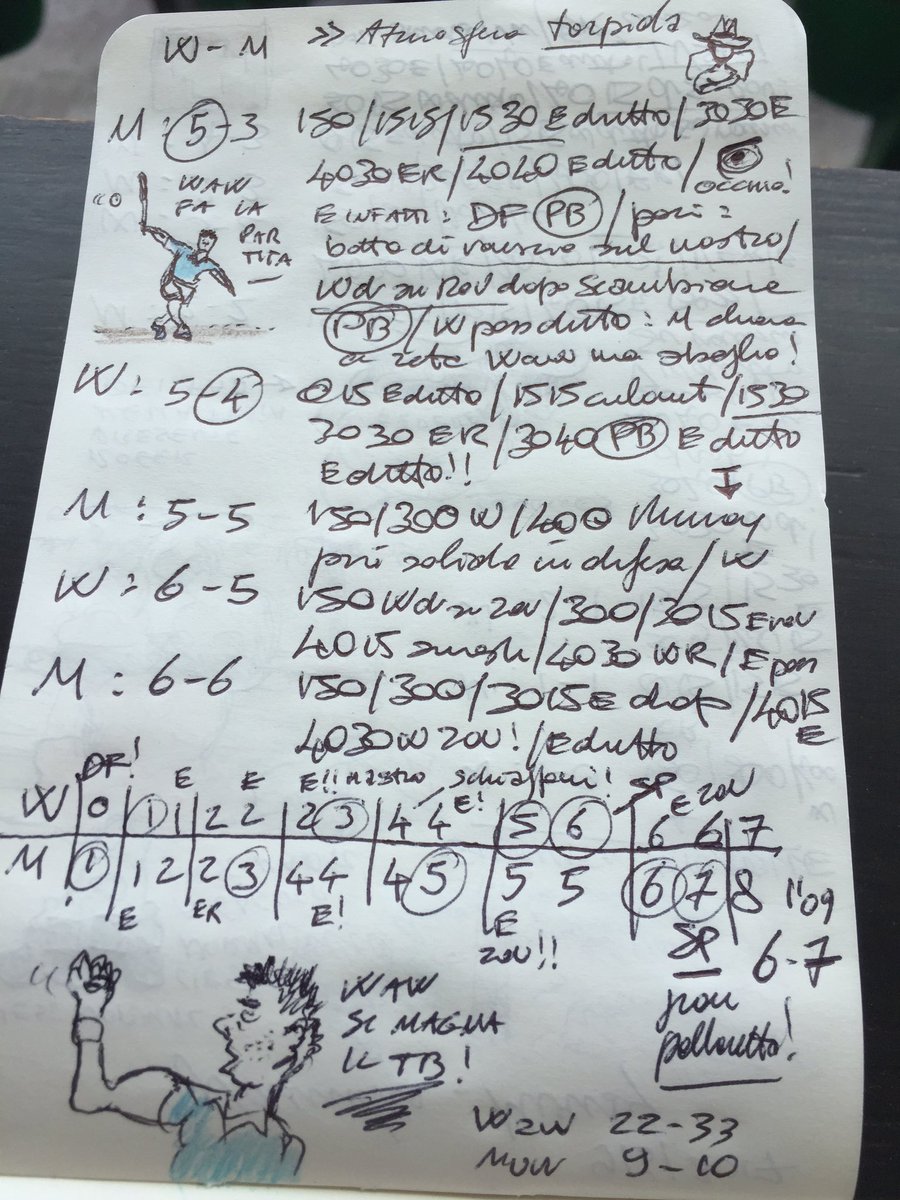 W - M >> Atmosfera torpida
M : 5-3 150/1515/1530 E dritto/3030 E
4030 ER/4040 E dritto/ occhio!
WAW FA LA PARTITA
E INFATTI: DF PB / poi:
botta di rovescio sul nastro/
W dr su Rov dopo scambione
PB / W pass dritto: M
a rete Waw ma sbaglia!
W : 5-4 015 E dritto/1515 /1530
3030 ER/3040 PB E dritto
E dritto!!
M : 5-5 150/300 W/400 Murray
più solido in difesa/W
W : 6-5 150 W dr su rov/300/3015 E rov
4015 smash/4030 WR/E pass
M : 6-6 150/300/3015 E drop/4015 E
4030 W rov!/E dritto
DF! E E E!! nastro schiaffoni! E! SP E rov
W 0 1 1 2 2 2 3 4 4 5 6 6 6 7
M 1 1 2 2 3 4 4 4 5 5 5 6 7 8 1"09
E ER E! E rov!! SP 6-7
pallonetto!
WAW
SI MAGNA
IL TB!
WAW 22-33
MUR 9-10